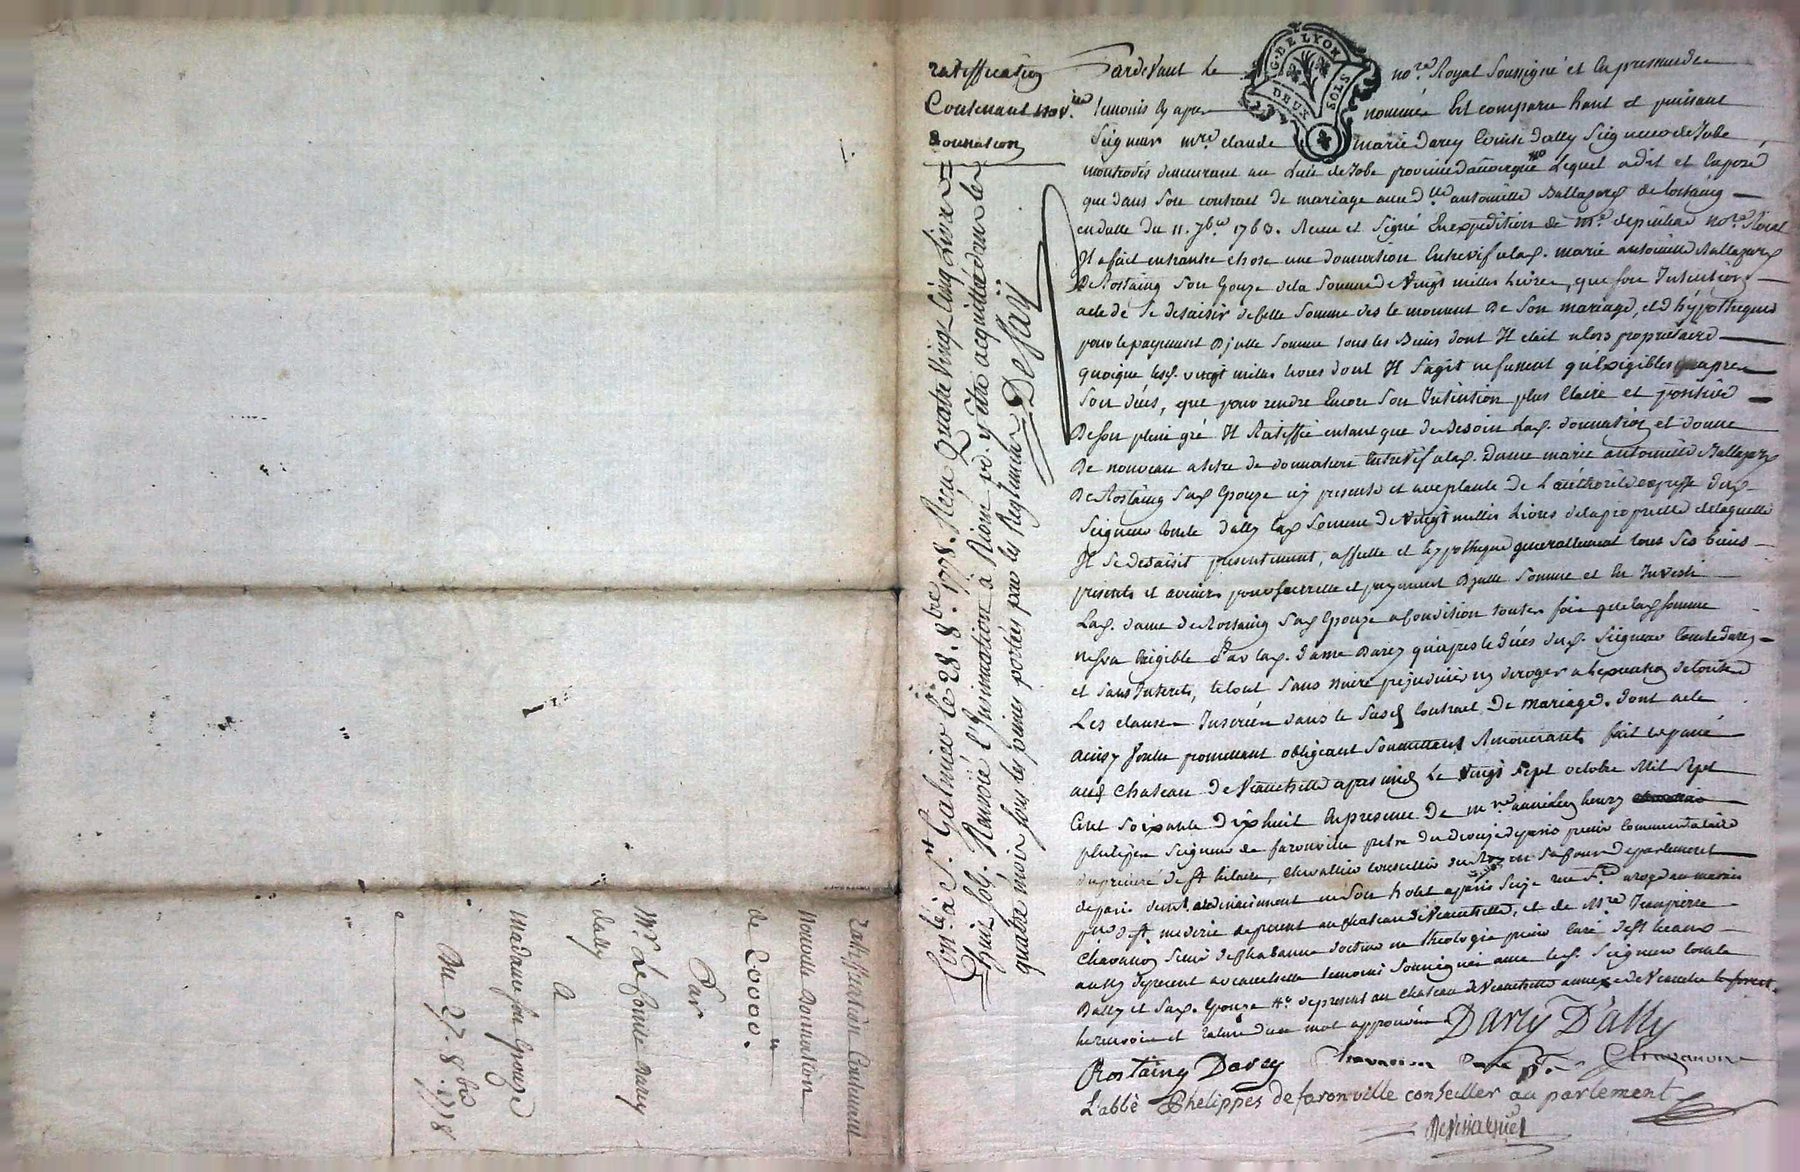 ratiffication
Contenant nouv.
donnation
G. DE LYON
DEUX SOLS
Pardevant le no.re Royal Soussigné et En presence des
temoins cy apres nommés Est comparu haut et puissant
Seigneur m.re claude marie darcy Comte dally Seigneur de Jobe
montrodés demeurant au Lieu de Jobe province dauvergne Lequel a dit et Exposé
que dans Son contract de mariage avec d.lle antoinette Baltazard de Rostaing
en datte du 11. 7b.re 1763. Receu et Signé En expedition de m.e no.re Royal
Il a fait entrautre chose une donnation Entrevif a lad. marie antoinette Baltazard
De Rostaing Son Epouze de la Somme de Vingt milles Livres, que Son Intention
a ete de Se desaisir de cette Somme des le moment De Son mariage, et d'hypothequer
pour le payement D'jcelle Somme tous les Biens dont Il etait alors proprietaire
quoique lesd. vingt milles livres dont Il S'agit ne fussent qu'Exigibles qu'apres
Son déces, que pour rendre Encore Son Intention plus Claire et positive
De Son plein gré Il Ratiffie entant que de Besoin Lad. donnation et donne
De nouveau a titre de donnation Entrevif a lad. Dame marie antoinette Baltazard
De Rostaing Sad. Epouze icy presente et acceptante De L'authorité expresse dud.
Seigneur Comte dally lad. Somme De Vingt milles Livres de la proprieté de laquelle
Il Se desaisit presentement, affecte et hypotheque generallement tous Ses biens
présents et avenirs pour Sa et payement D'jcelle Somme et En Investi
Lad. dame De Rostaing Sad. Epouze a Condition toutes fois que lad. Somme
ne Sera Exigible Par lad. Dame Darcy qu'apres le déces dud. Seigneur Comte darcy
et Sans Interets, le tout Sans nuire prejudicier ny deroger a de toutes
Les clauses Inserées dans le Susd. Contract De mariage. dont acte
ainsy Voulu promettant obligeant Soumettant Renonciant, fait et passé
aud. Chateau De Veauchette apres midy Le Vingt Sept octobre Mil Sept
Cent Soixante Dix huit En presence De m.re henry
phelippes Seigneur de faronville pretre du diocèze de paris prieur Commendataire
du prieuré de St hilaire, Chevallier Conseiller du Roy en Sa Cour de parlement
de paris demt. ordinairement en Son hotel a paris Seize rue
de present au chateau de Veauchette, et de M.re Jean pierre
Chavanon Docteur en theologie prieur Curé de
de present a veauchette temoins Soussignés avec led. Seigneur Comte
Dally et Sad. Epouze de present au chateau de Veauchette annexe de Veauche
Darcy D'ally
Rostaing Darcy
Chavanon
L'abbé Phelippes de faronville conseiller au parlement
Con.lé à S.t Galmier le 28. 8bre 1778. Reçu Quatre Vingt Cinq Livres
Renvoïé l'Insinuation à Riom p.r y etre acquittée dans les
quattre mois sous les peines portées par les Reglements
Ratiffication Contenant
Nouvelle Donnation
de 20000.#
Par
M.r Le Comte Darcy
dally
A
Madame Son Epouze
Du 27. 8bre 1778